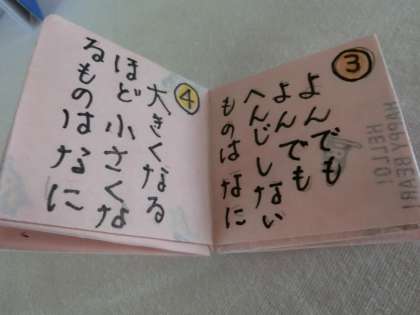 ③
よんでも
よんでも
へんじしない
ものはなに
HELLO!
HAPPY BEAR!
④
大きくなる
ほど小さくな
るものはなに